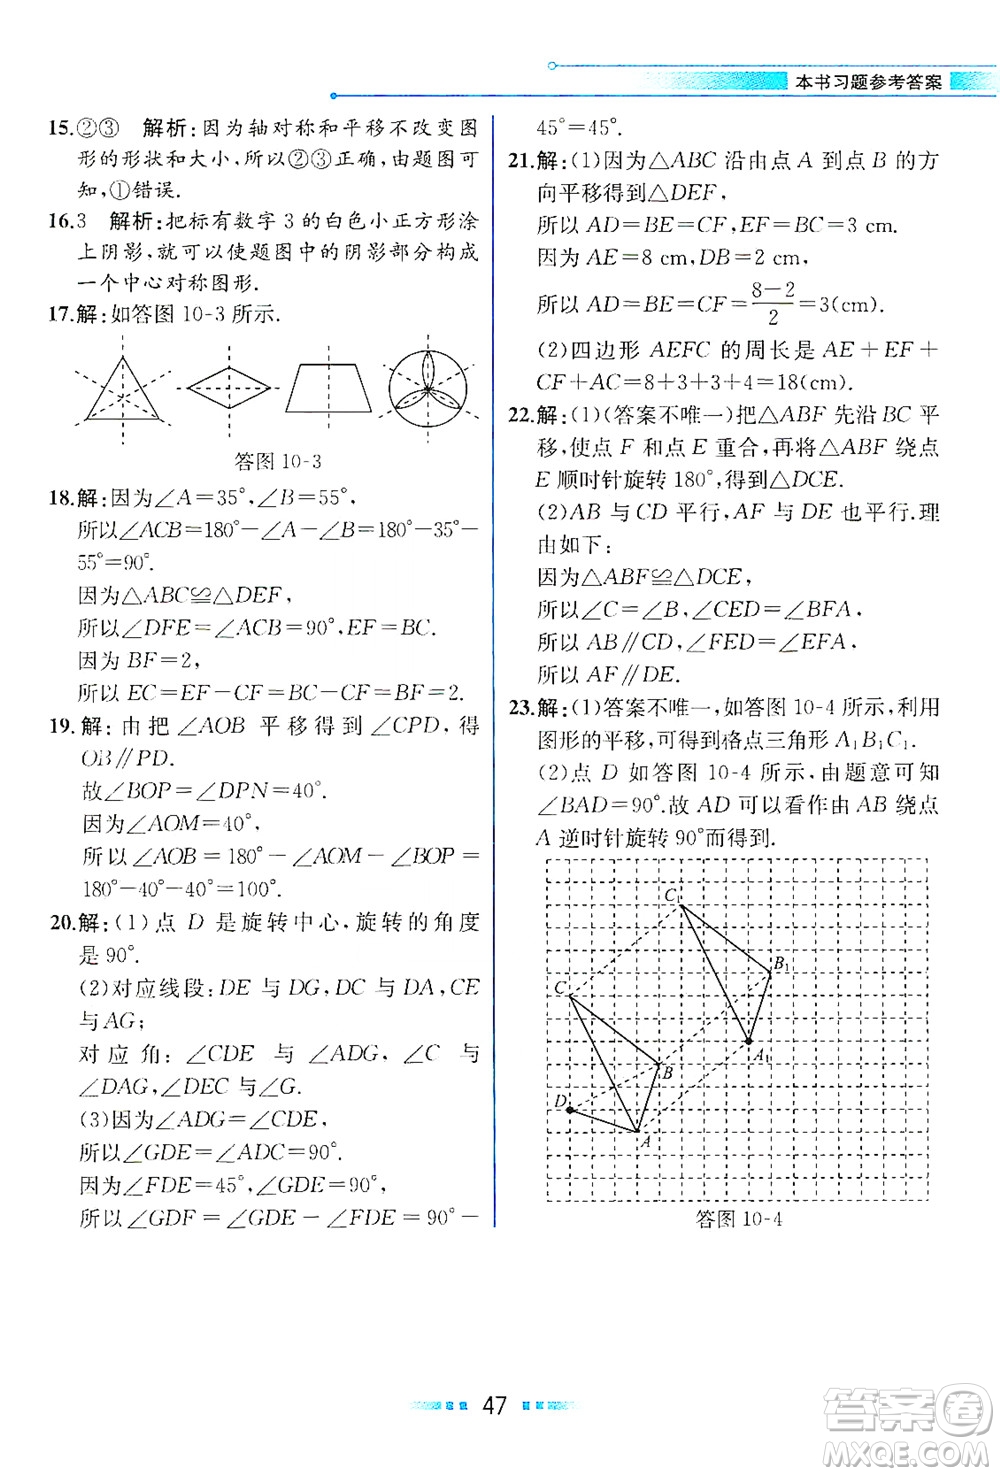 本书习题参考答案
15.②③　解析:因为轴对称和平移不改变图
形的形状和大小,所以②③正确,由题图可
知,①错误.
16.3　解析:把标有数字 3 的白色小正方形涂
上阴影,就可以使题图中的阴影部分构成
一个中心对称图形.
17.解:如答图 10-3 所示.
答图 10-3
18.解:因为∠A=35°,∠B=55°,
所以∠ACB=180°-∠A-∠B=180°-35°-
55°=90°.
因为△ABC≌△DEF,
所以∠DFE=∠ACB=90°,EF=BC.
因为 BF=2,
所以 EC=EF-CF=BC-CF=BF=2.
19.解:由把∠AOB 平移得到∠CPD,得
OB∥PD.
故∠BOP=∠DPN=40°.
因为∠AOM=40°,
所以∠AOB=180°-∠AOM-∠BOP=
180°-40°-40°=100°.
20.解:(1)点 D 是旋转中心,旋转的角度
是 90°.
(2)对应线段:DE 与 DG,DC 与 DA,CE
与 AG;
对应角:∠CDE 与∠ADG,∠C 与
∠DAG,∠DEC 与∠G.
(3)因为∠ADG=∠CDE,
所以∠GDE=∠ADC=90°.
因为∠FDE=45°,∠GDE=90°,
所以∠GDF=∠GDE-∠FDE=90°-
45°=45°.
21.解:(1)因为△ABC 沿由点 A 到点 B 的方
向平移得到△DEF,
所以 AD=BE=CF,EF=BC=3 cm.
因为 AE=8 cm,DB=2 cm,
所以 AD=BE=CF=\frac{8-2}{2}=3(cm).
(2)四边形 AEFC 的周长是 AE+EF+
CF+AC=8+3+3+4=18(cm).
22.解:(1)(答案不唯一)把△ABF 先沿 BC 平
移,使点 F 和点 E 重合,再将△ABF 绕点
E 顺时针旋转 180°,得到△DCE.
(2)AB 与 CD 平行,AF 与 DE 也平行.理
由如下:
因为△ABF≌△DCE,
所以∠C=∠B,∠CED=∠BFA,
所以 AB∥CD,∠FED=∠EFA.
所以 AF∥DE.
23.解:(1)答案不唯一,如答图 10-4 所示,利用
图形的平移,可得到格点三角形 A₁B₁C₁.
(2)点 D 如答图 10-4 所示,由题意可知
∠BAD=90°.故 AD 可以看作由 AB 绕点
A 逆时针旋转 90°而得到.
C₁
B₁
C
A₁
B
D
A
答图 10-4
47
答案圈
MXQE.COM